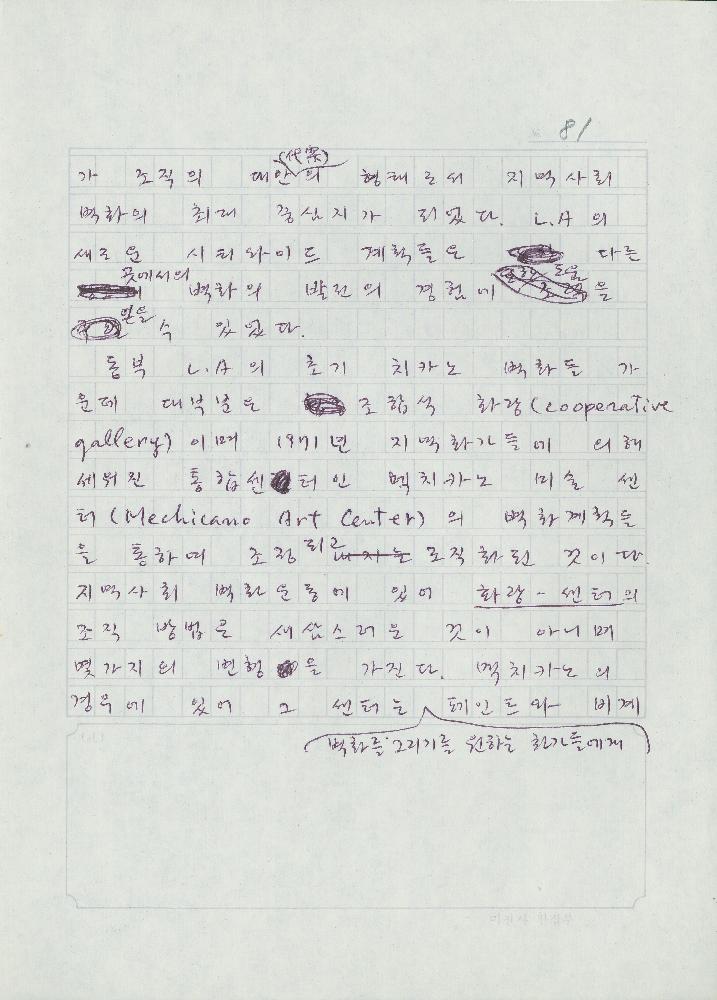 81
가 조직의 대안(代案)의 형태로서 지역사회
벽화의 최대 중심지가 되었다. L.A의
새로운 시티와이드 계획들은 다른
곳에서의 벽화의 발전의 경험에 도움을
얻을 수 있었다.
동부 L.A의 초기 치카노 벽화들 가
운데 대부분은 조합식 화랑(cooperative
gallery)이며 1971년 지역화가들에 의해
세워진 통합센터인 멕치카노 미술 센
터(Mechicano Art Center)의 벽화계획들
을 통하여 조정되고 조직화된 것이다.
지역사회 벽화운동에 있어 화랑-센터의
조직 방법은 새삼스러운 것이 아니며
몇가지의 변형을 가진다. 멕치카노의
경우에 있어 그 센터는 페인트와 비계
벽화를 그리기를 원하는 화가들에게